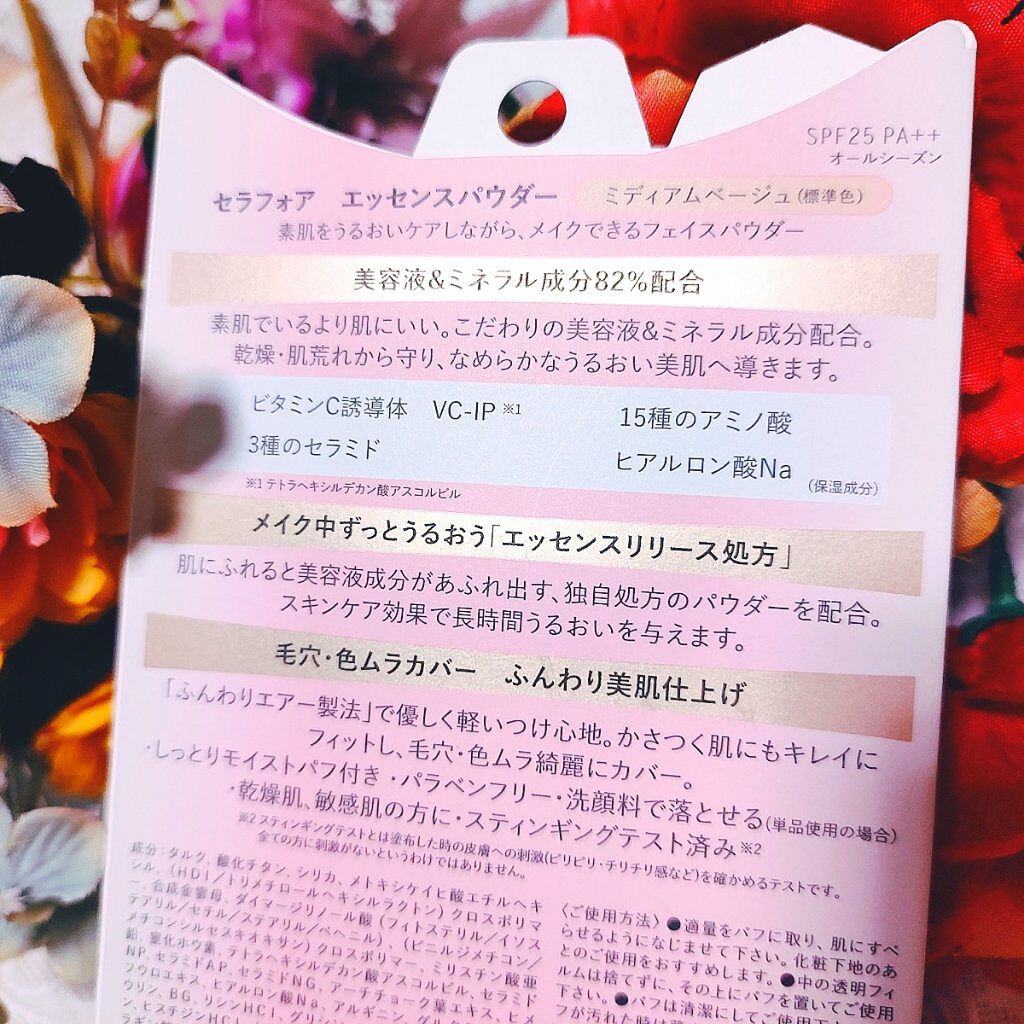 SPF25 PA++
オールシーズン
セラフォア エッセンスパウダー ミディアムベージュ(標準色)
素肌をうるおいケアしながら、メイクできるフェイスパウダー
美容液&ミネラル成分82%配合
素肌でいるより肌にいい。こだわりの美容液&ミネラル成分配合。
乾燥・肌荒れから守り、なめらかなうるおい美肌へ導きます。
ビタミンC誘導体 VC-IP ※1 15種のアミノ酸
3種のセラミド ヒアルロン酸Na (保湿成分)
※1 テトラヘキシルデカン酸アスコルビル
メイク中ずっとうるおう「エッセンスリリース処方」
肌にふれると美容液成分があふれ出す、独自処方のパウダーを配合。
スキンケア効果で長時間うるおいを与えます。
毛穴・色ムラカバー ふんわり美肌仕上げ
「ふんわりエアー製法」で優しく軽いつけ心地。かさつく肌にもキレイに
フィットし、毛穴・色ムラ綺麗にカバー。
・しっとりモイストパフ付き ・パラベンフリー・洗顔料で落とせる(単品使用の場合)
・乾燥肌、敏感肌の方に・スティンギングテスト済み※2
※2 スティンギングテストとは塗布した時の皮膚への刺激(ピリピリ・チリチリ感など)を確かめるテストです。
全ての方に刺激がないというわけではありません。
成分:タルク、酸化チタン、シリカ、メトキシケイヒ酸エチルヘキ
シル、(HDI/トリメチロールヘキシルラクトン)クロスポリマ
ー、合成金雲母、ダイマージリノール酸(フィトステリル/イソス
テアリル/セチル/ステアリル/ベヘニル)、(ビニルジメチコン/
メチコンシルセスキオキサン)クロスポリマー、ミリスチン酸亜
鉛、窒化ホウ素、テトラヘキシルデカン酸アスコルビル、セラミド
NP、セラミドAP、セラミドNG、アーチチョーク葉エキス、ヒメ
フウロエキス、ヒアルロン酸Na、アルギニン、
ウリン、BG、リシンHCl、
ン、ヒスチジンHCl、
〈ご使用方法〉●適量をパフに取り、肌にすべ
らせるようになじませて下さい。化粧下地のあ
とのご使用をおすすめします。●中の透明フィ
ルムは捨てずに、その上にパフを置いてご使用
下さい。●パフは清潔にしてご使用下